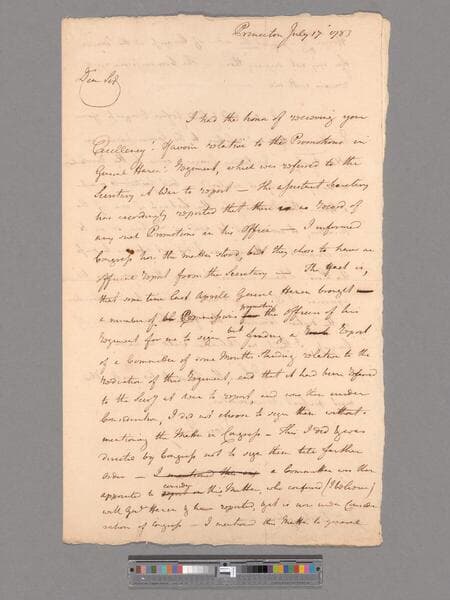 Princeton July 17th 1783
Dear Sir
I had the honor of receiving your
Excellency's favour relative to the Promotions in
General Hazen's Regiment, which was referred to the
Secretary at War to report — the assistant Secretary
has accordingly reported that there is no Record of
any such Promotions in his Office — I informed
Congress how the matter stood, but they chose to have an
official Report from the Secretary — The fact is,
that some time last April General Hazen brought
a number of Commissions promoting the Officers of his
Regiment for me to sign but finding a Report
of a Committee of some Months standing relative to the
reduction of this Regiment, and that it had been referred
to the Secy at War to report, and was then under
Consideration, I did not choose to sign them without
mentioning the Matter in Congress — This I did & was
directed by Congress not to sign them till farther
order — I mentioned the a Committee was then
appointed to consider report on this Matter, who conferred (I believe)
with Genl Hazen & have reported, yet is now under Conside
ration of Congress — I mentioned this Matter to General